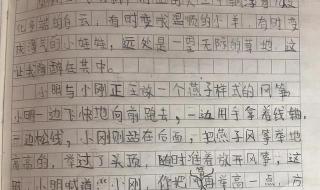 化多端的白云，有时变成温顺的小羊，有时变
成淘气的小娃娃，远处是一望无际的草地，这
让我陶醉在其中。
小明与小刚正放一个燕子样式的风筝，
小明一边飞快地向前跑去，一边用手拿着线轴，
一边松线，小刚则站在后面，把燕子风筝举地
高高的，举过了头顶，随时准备放开风筝，这
时，小明喊道：“小刚，你把筝高一点，方